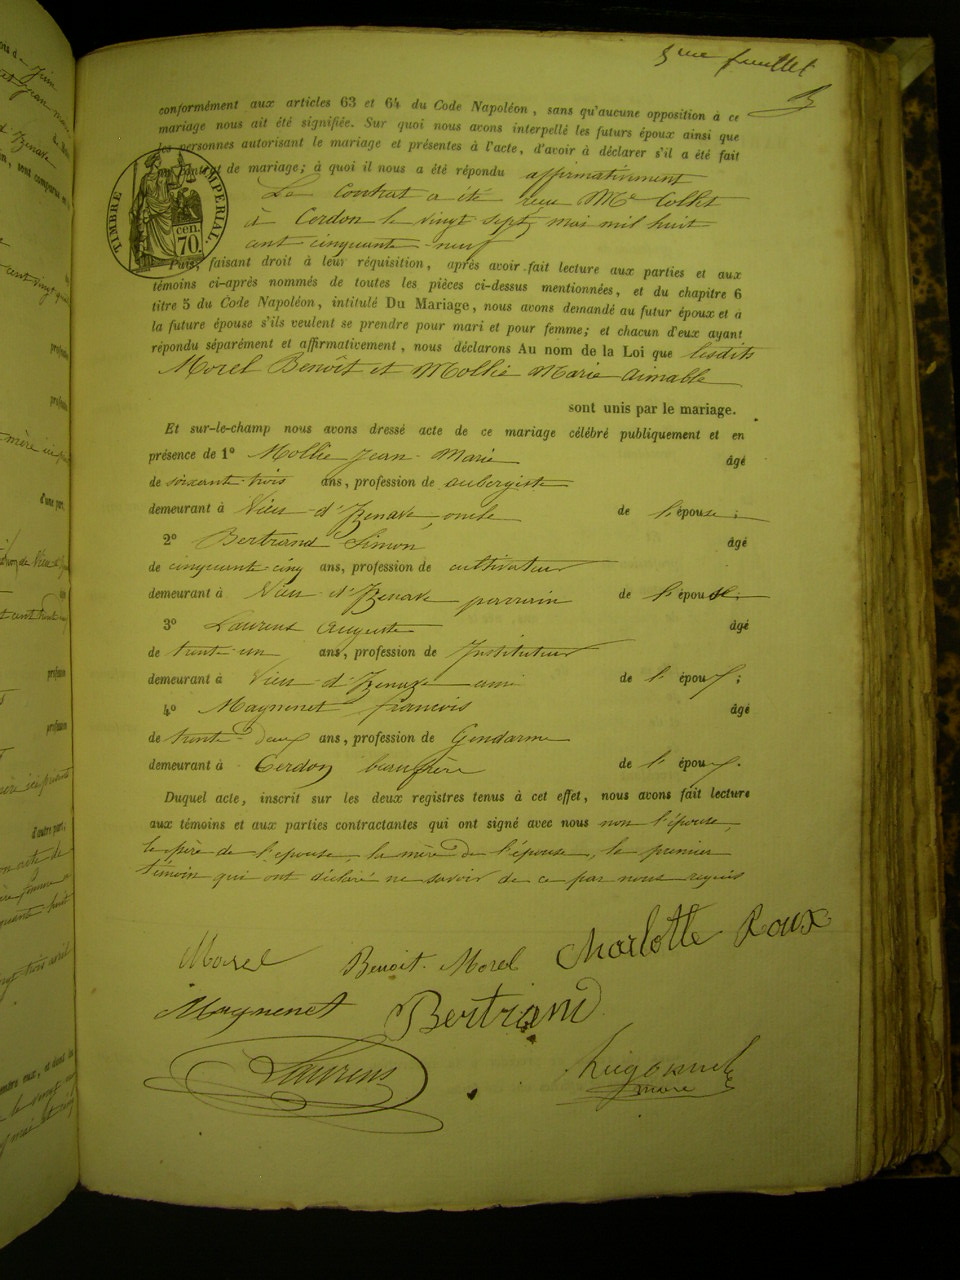 5me feuillet
conformément aux articles 63 et 64 du Code Napoléon, sans qu'aucune opposition à ce
mariage nous ait été signifiée. Sur quoi nous avons interpellé les futurs époux ainsi que
les personnes autorisant le mariage et présentes à l'acte, d'avoir à déclarer s'il a été fait
un contrat de mariage; à quoi il nous a été répondu affirmativement
TIMBRE IMPÉRIAL.
cen.
70.
Le contrat a été reçu Me Collet
à Cerdon le vingt sept mai mil huit
cent cinquante-neuf
Puis, faisant droit à leur réquisition, après avoir fait lecture aux parties et aux
témoins ci-après nommés de toutes les pièces ci-dessus mentionnées, et du chapitre 6
titre 5 du Code Napoléon, intitulé Du Mariage, nous avons demandé au futur époux et à
la future épouse s'ils veulent se prendre pour mari et pour femme; et chacun d'eux ayant
répondu séparément et affirmativement, nous déclarons Au nom de la Loi que lesdits
Morel Benoît et Mollie Marie aimable
sont unis par le mariage.
Et sur-le-champ nous avons dressé acte de ce mariage célébré publiquement et en
présence de 1º Mollie Jean-Marie âgé
de soixante-trois ans, profession de aubergiste
demeurant à Vieu-d'Izenave, oncle de l'épouse;
2º Bertrand Simon âgé
de cinquante-cinq ans, profession de cultivateur
demeurant à Vieu-d'Izenave de l'épouse;
3º Laurens Auguste âgé
de trente-un ans, profession de Instituteur
demeurant à Vieu-d'Izenave ami de l'époux;
4º Magnenet francois âgé
de trente-deux ans, profession de Gendarme
demeurant à Cerdon beaufrère de l'époux.
Duquel acte, inscrit sur les deux registres tenus à cet effet, nous avons fait lecture
aux témoins et aux parties contractantes qui ont signé avec nous non l'épouse,
le père de l'épouse, la mère de l'épouse, le premier
témoin qui ont déclaré ne savoir de ce par nous requis
Morel Benoit Morel Charlotte Roux
Magnenet Bertrand
Laurens
maire